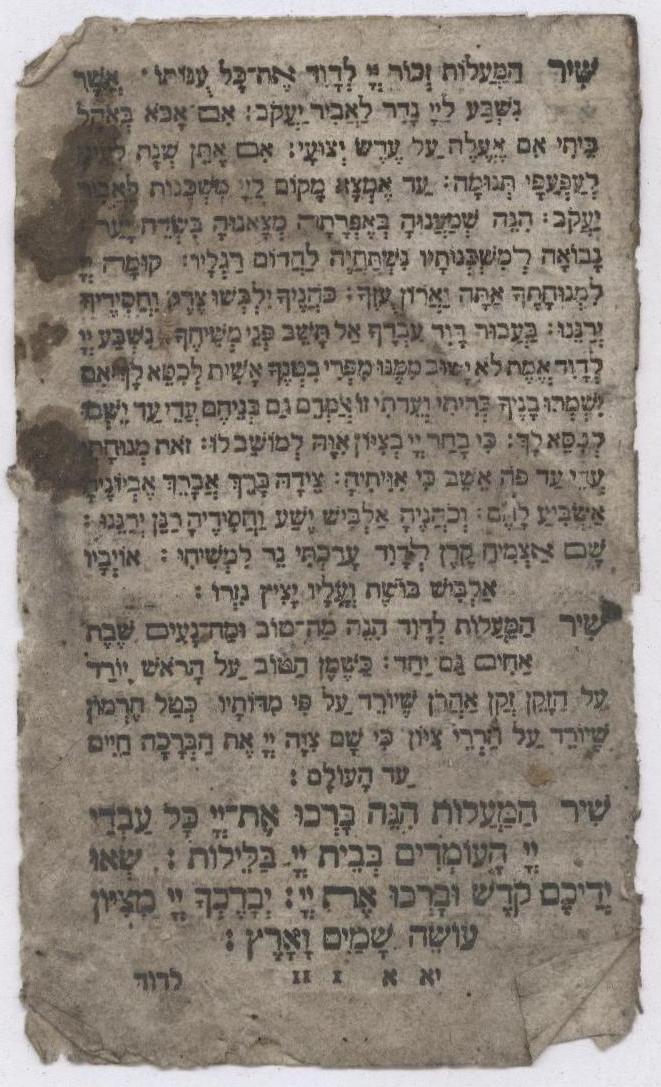 שִׁיר הַמַּעֲלוֹת זְכוֹר יְיָ לְדָוִד אֶת־כָּל עֻנּוֹתוֹ׃ אֲשֶׁר
נִשְׁבַּע לַיְיָ נָדַר לַאֲבִיר יַעֲקֹב׃ אִם־אָבֹא בְּאֹהֶל
בֵּיתִי אִם אֶעֱלֶה עַל עֶרֶשׂ יְצוּעָי׃ אִם אֶתֵּן שְׁנַת
לְעַפְעַפַּי תְּנוּמָה׃ עַד אֶמְצָא מָקוֹם לַיְיָ מִשְׁכָּנוֹת לַאֲבִיר
יַעֲקֹב׃ הִנֵּה שְׁמַעֲנוּהָ בְאֶפְרָתָה מְצָאנוּהָ בִּשְׂדֵה יָעַר׃
נָבוֹאָה לְמִשְׁכְּנוֹתָיו נִשְׁתַּחֲוֶה לַהֲדוֹם רַגְלָיו׃ קוּמָה יְיָ
לִמְנוּחָתֶךָ אַתָּה וַאֲרוֹן עֻזֶּךָ׃ כֹּהֲנֶיךָ יִלְבְּשׁוּ צֶדֶק וַחֲסִידֶיךָ
יְרַנֵּנוּ׃ בַּעֲבוּר דָּוִד עַבְדֶּךָ אַל תָּשֵׁב פְּנֵי מְשִׁיחֶךָ׃ נִשְׁבַּע יְיָ
לְדָוִד אֱמֶת לֹא יָשׁוּב מִמֶּנּוּ מִפְּרִי בִטְנְךָ אָשִׁית לְכִסֵּא לָךְ׃ אִם
יִשְׁמְרוּ בָנֶיךָ בְּרִיתִי וְעֵדֹתִי זוֹ אֲלַמְּדֵם גַּם בְּנֵיהֶם עֲדֵי עַד יֵשְׁבוּ
לְכִסֵּא לָךְ׃ כִּי בָחַר יְיָ בְּצִיּוֹן אִוָּהּ לְמוֹשָׁב לוֹ׃ זֹאת מְנוּחָתִי
עֲדֵי עַד פֹּה אֵשֵׁב כִּי אִוִּיתִיהָ׃ צֵידָהּ בָּרֵךְ אֲבָרֵךְ אֶבְיוֹנֶיהָ
אַשְׂבִּיעַ לָחֶם׃ וְכֹהֲנֶיהָ אַלְבִּישׁ יֶשַׁע וַחֲסִידֶיהָ רַנֵּן יְרַנֵּנוּ׃
שָׁם אַצְמִיחַ קֶרֶן לְדָוִד עָרַכְתִּי נֵר לִמְשִׁיחִי׃ אוֹיְבָיו
אַלְבִּישׁ בֹּשֶׁת וְעָלָיו יָצִיץ נִזְרוֹ׃
שִׁיר הַמַּעֲלוֹת לְדָוִד הִנֵּה מַה־טּוֹב וּמַה־נָּעִים שֶׁבֶת
אַחִים גַּם יָחַד׃ כַּשֶּׁמֶן הַטּוֹב עַל הָרֹאשׁ יוֹרֵד
עַל הַזָּקָן זְקַן אַהֲרֹן שֶׁיּוֹרֵד עַל פִּי מִדּוֹתָיו׃ כְּטַל חֶרְמוֹן
שֶׁיּוֹרֵד עַל הַרְרֵי צִיּוֹן כִּי שָׁם צִוָּה יְיָ אֶת הַבְּרָכָה חַיִּים
עַד הָעוֹלָם׃
שִׁיר הַמַּעֲלוֹת הִנֵּה בָּרְכוּ אֶת־יְיָ כָּל עַבְדֵי
יְיָ הָעוֹמְדִים בְּבֵית יְיָ בַּלֵּילוֹת׃ שְׂאוּ
יְדֵיכֶם קֹדֶשׁ וּבָרְכוּ אֶת יְיָ׃ יְבָרֶכְךָ יְיָ מִצִּיּוֹן
עוֹשֵׂה שָׁמַיִם וָאָרֶץ׃
יא א 1 11 לדוד